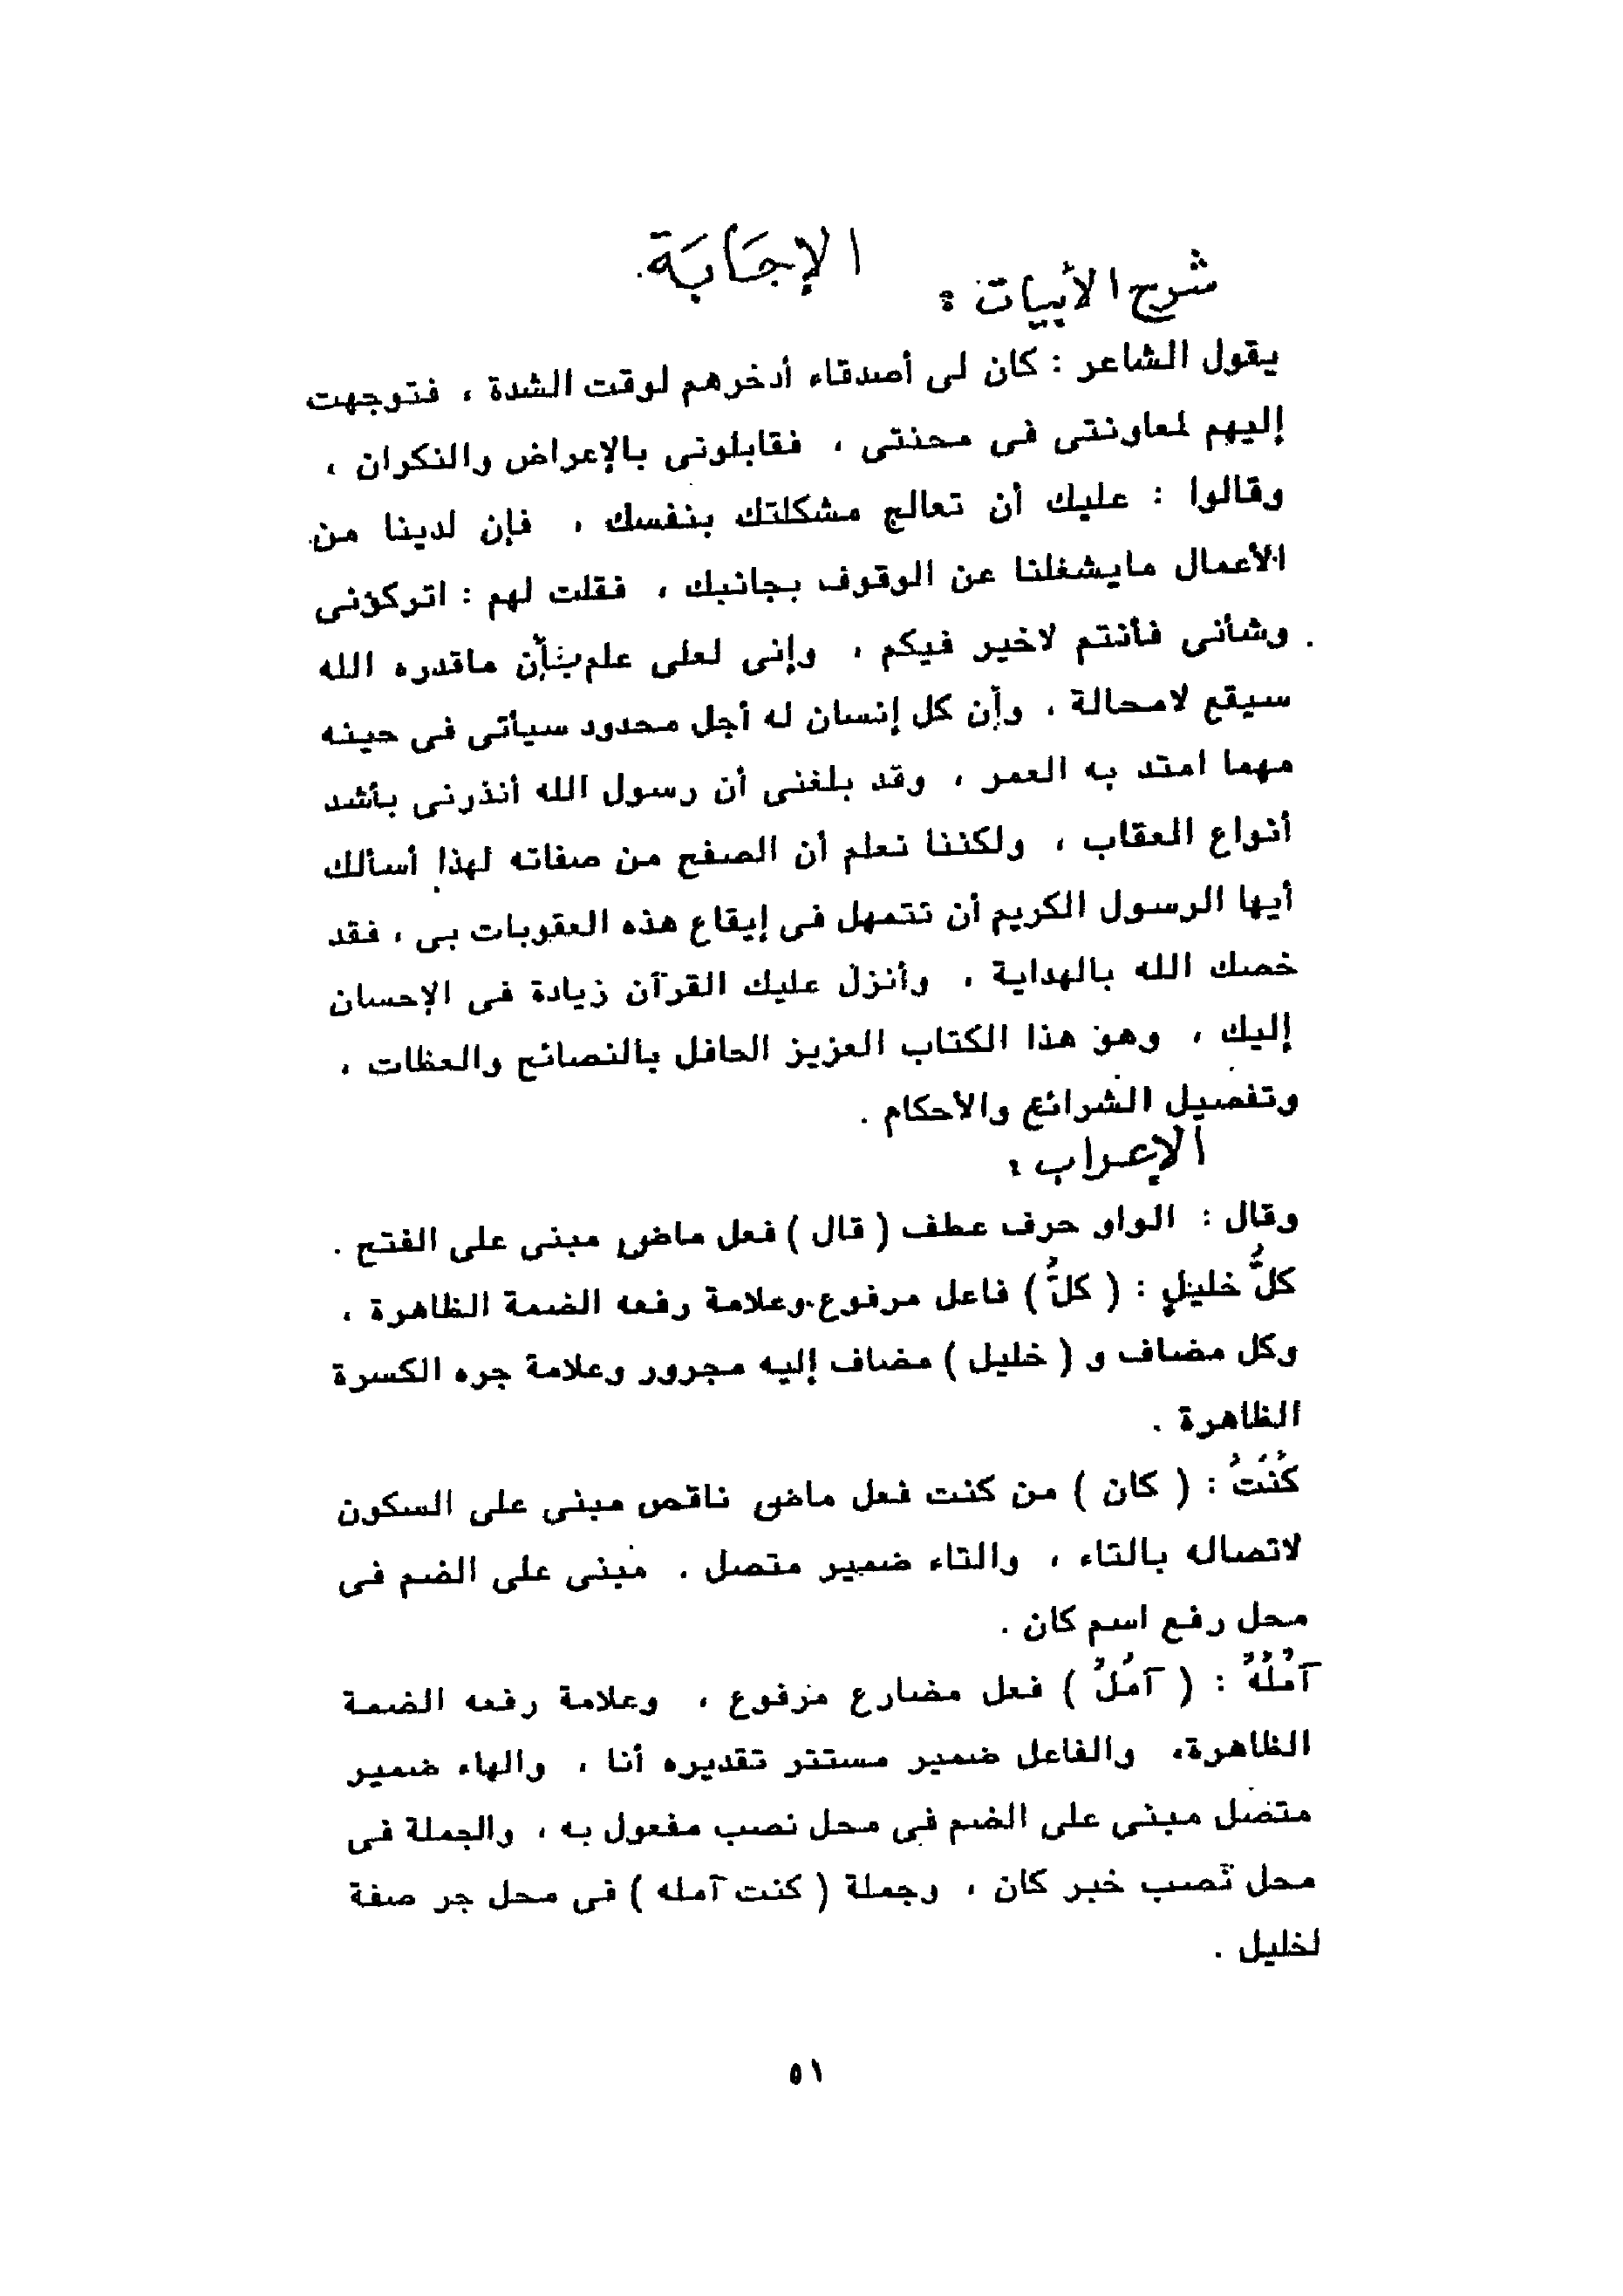 الإجَابَة
شرح الأبيات :
يقول الشاعر : كان لى أصدقاء أدخرهم لوقت الشدة ، فتوجهت
إليهم لمعاونتى فى محنتى ، فقابلونى بالإعراض والنكران ،
وقالوا : عليك أن تعالج مشكلتك بنفسك ، فإن لدينا من
الأعمال مايشغلنا عن الوقوف بجانبك ، فقلت لهم : اتركونى
وشأنى فأنتم لاخير فيكم ، وإنى لعلى علم بأن ماقدره الله
سيقع لامحالة ، وأن كل إنسان له أجل محدود سيأتى فى حينه
مهما امتد به العمر ، وقد بلغنى أن رسول الله أنذرنى بأشد
أنواع العقاب ، ولكننا نعلم أن الصفح من صفاته لهذا أسألك
أيها الرسول الكريم أن تتمهل فى إيقاع هذه العقوبات بى ، فقد
خصك الله بالهداية ، وأنزل عليك القرآن زيادة فى الإحسان
إليك ، وهو هذا الكتاب العزيز الحافل بالنصائح والعظات ،
وتفصيل الشرائع والأحكام .
الإعراب :
وقال : الواو حرف عطف ( قال ) فعل ماضى مبنى على الفتح .
كلُّ خليلٍ : ( كلُّ ) فاعل مرفوع وعلامة رفعه الضمة الظاهرة ،
وكل مضاف و ( خليل ) مضاف إليه مجرور وعلامة جره الكسرة
الظاهرة .
كُنتُ : ( كان ) من كنت فعل ماضى ناقص مبنى على السكون
لاتصاله بالتاء ، والتاء ضمير متصل . مبنى على الضم فى
محل رفع اسم كان .
آمُلُهُ : ( آمُلُ ) فعل مضارع مرفوع ، وعلامة رفعه الضمة
الظاهرة، والفاعل ضمير مستتر تقديره أنا ، والهاء ضمير
متصل مبنى على الضم فى محل نصب مفعول به ، والجملة فى
محل نصب خبر كان ، وجملة ( كنت آمله ) فى محل جر صفة
لخليل .
٥١